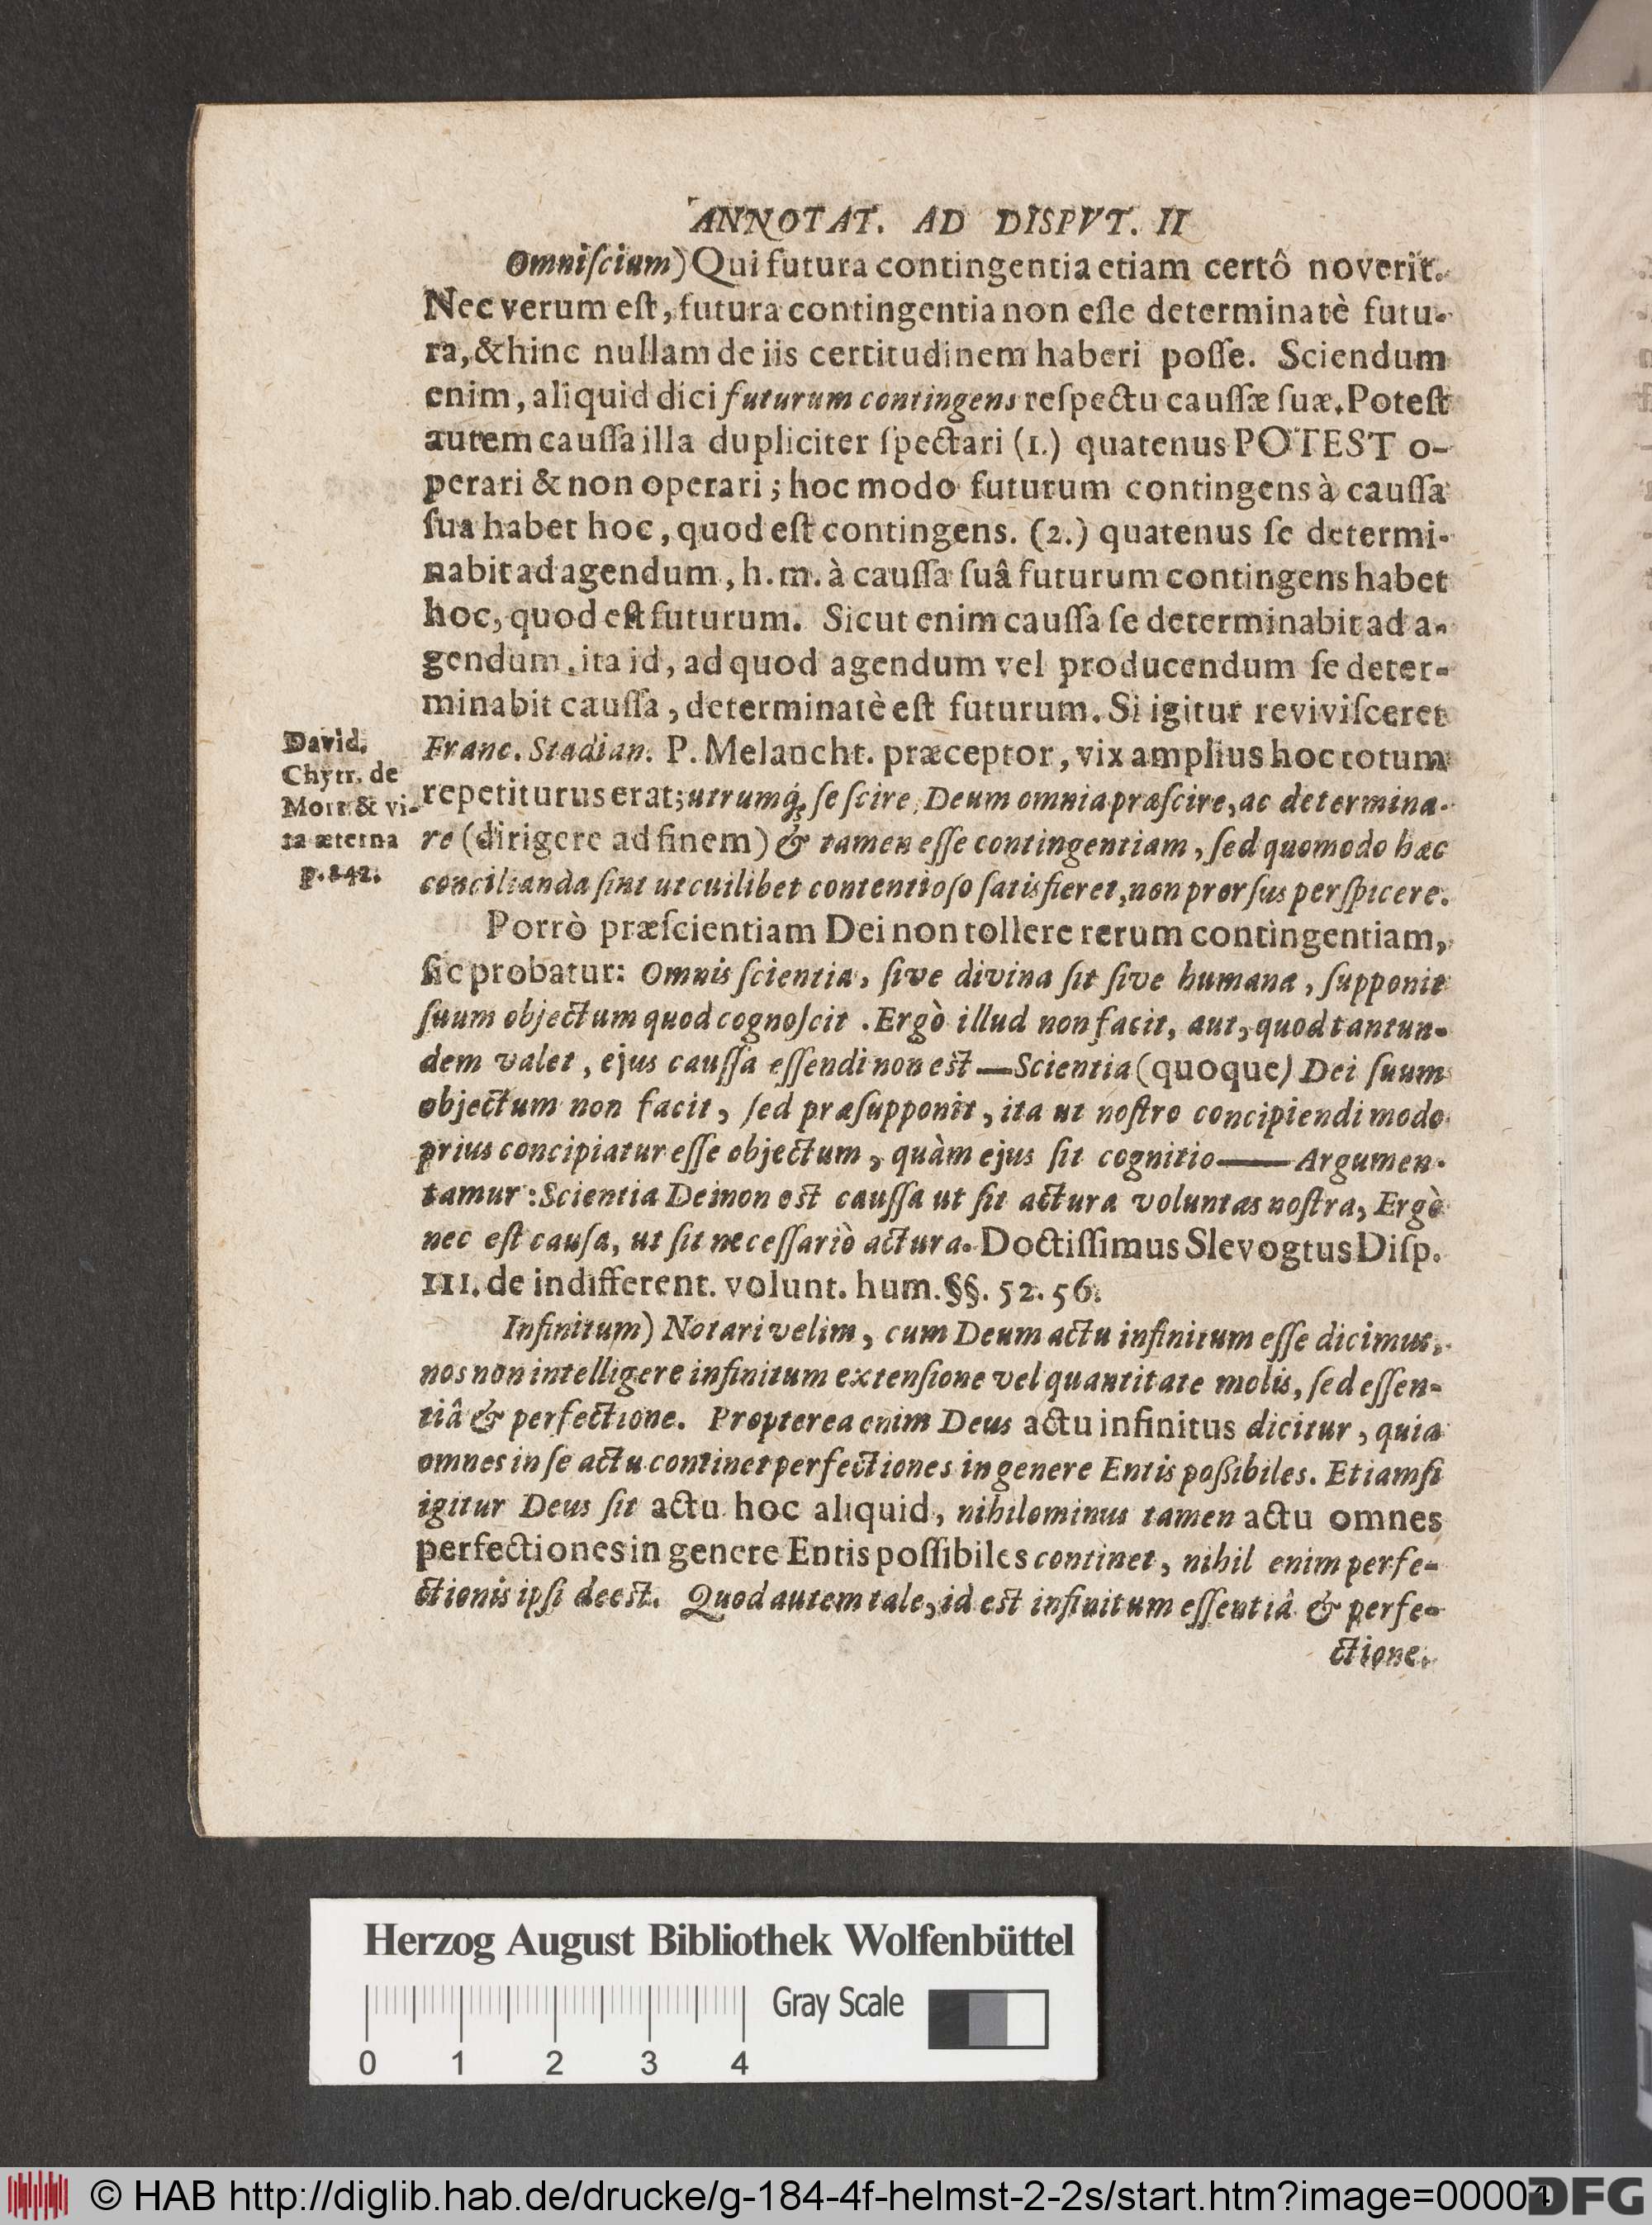 ANNOTAT. AD DISPVT. II
Omniſcium) Qui futura contingentia etiam certô noverit.
Nec verum eſt, futura contingentia non eſſe determinatè futu-
ra, & hinc nullam de iis certitudinem haberi poſſe. Sciendum
enim, aliquid dici futurum contingens reſpectu cauſſæ ſuæ. Poteſt
autem cauſſa illa dupliciter ſpectari (1.) quatenus POTEST o-
perari & non operari; hoc modo futurum contingens à cauſſa
ſua habet hoc, quod eſt contingens. (2.) quatenus ſe determi-
nabit ad agendum, h. m. à cauſſa ſuâ futurum contingens habet
hoc, quod eſt futurum. Sicut enim cauſſa ſe determinabit ad a-
gendum, ita id, ad quod agendum vel producendum ſe deter-
minabit cauſſa, determinatè eſt futurum. Si igitur reviviſceret
Franc. Stadian. P. Melancht. præceptor, vix amplius hoc totum
repetiturus erat; utrumq́; ſe ſcire, Deum omnia præſcire, ac determina-
re (dirigere ad finem) & tamen eſſe contingentiam, ſed quomodo hæc
concilianda ſint ut cuilibet contentioſo ſatisfieret, non prorſus perſpicere.
David.
Chytr. de
Mort. & vi-
ta æterna
p. 242.
Porrò præſcientiam Dei non tollere rerum contingentiam,
ſic probatur: Omnis ſcientia, ſive divina ſit ſive humana, ſupponit
ſuum objectum quod cognoſcit. Ergò illud non facit, aut, quod tantun-
dem valet, ejus cauſſa eſſendi non eſt — Scientia (quoque) Dei ſuum
objectum non facit, ſed præſupponit, ita ut noſtro concipiendi modo
prius concipiatur eſſe objectum, quàm ejus ſit cognitio —— Argumen-
tamur: Scientia Dei non eſt cauſſa ut ſit actura voluntas noſtra, Ergò
nec eſt cauſa, ut ſit neceſſariò actura. Doctiſſimus Slevogtus Diſp.
III. de indifferent. volunt. hum. §§. 52. 56.
Infinitum) Notari velim, cum Deum actu infinitum eſſe dicimus,
nos non intelligere infinitum extenſione vel quantitate molis, ſed eſſen-
tiâ & perfectione. Propterea enim Deus actu infinitus dicitur, quia
omnes in ſe actu continet perfectiones in genere Entis poßibiles. Etiamſi
igitur Deus ſit actu hoc aliquid, nihilominus tamen actu omnes
perfectiones in genere Entis poſſibiles continet, nihil enim perfe-
ctionis ipſi deeſt. Quod autem tale, id eſt infinitum eſſentiâ & perfe-
ctione,
Herzog August Bibliothek Wolfenbüttel
Gray Scale
0 1 2 3 4
© HAB http://diglib.hab.de/drucke/g-184-4f-helmst-2-2s/start.htm?image=00004
DFG